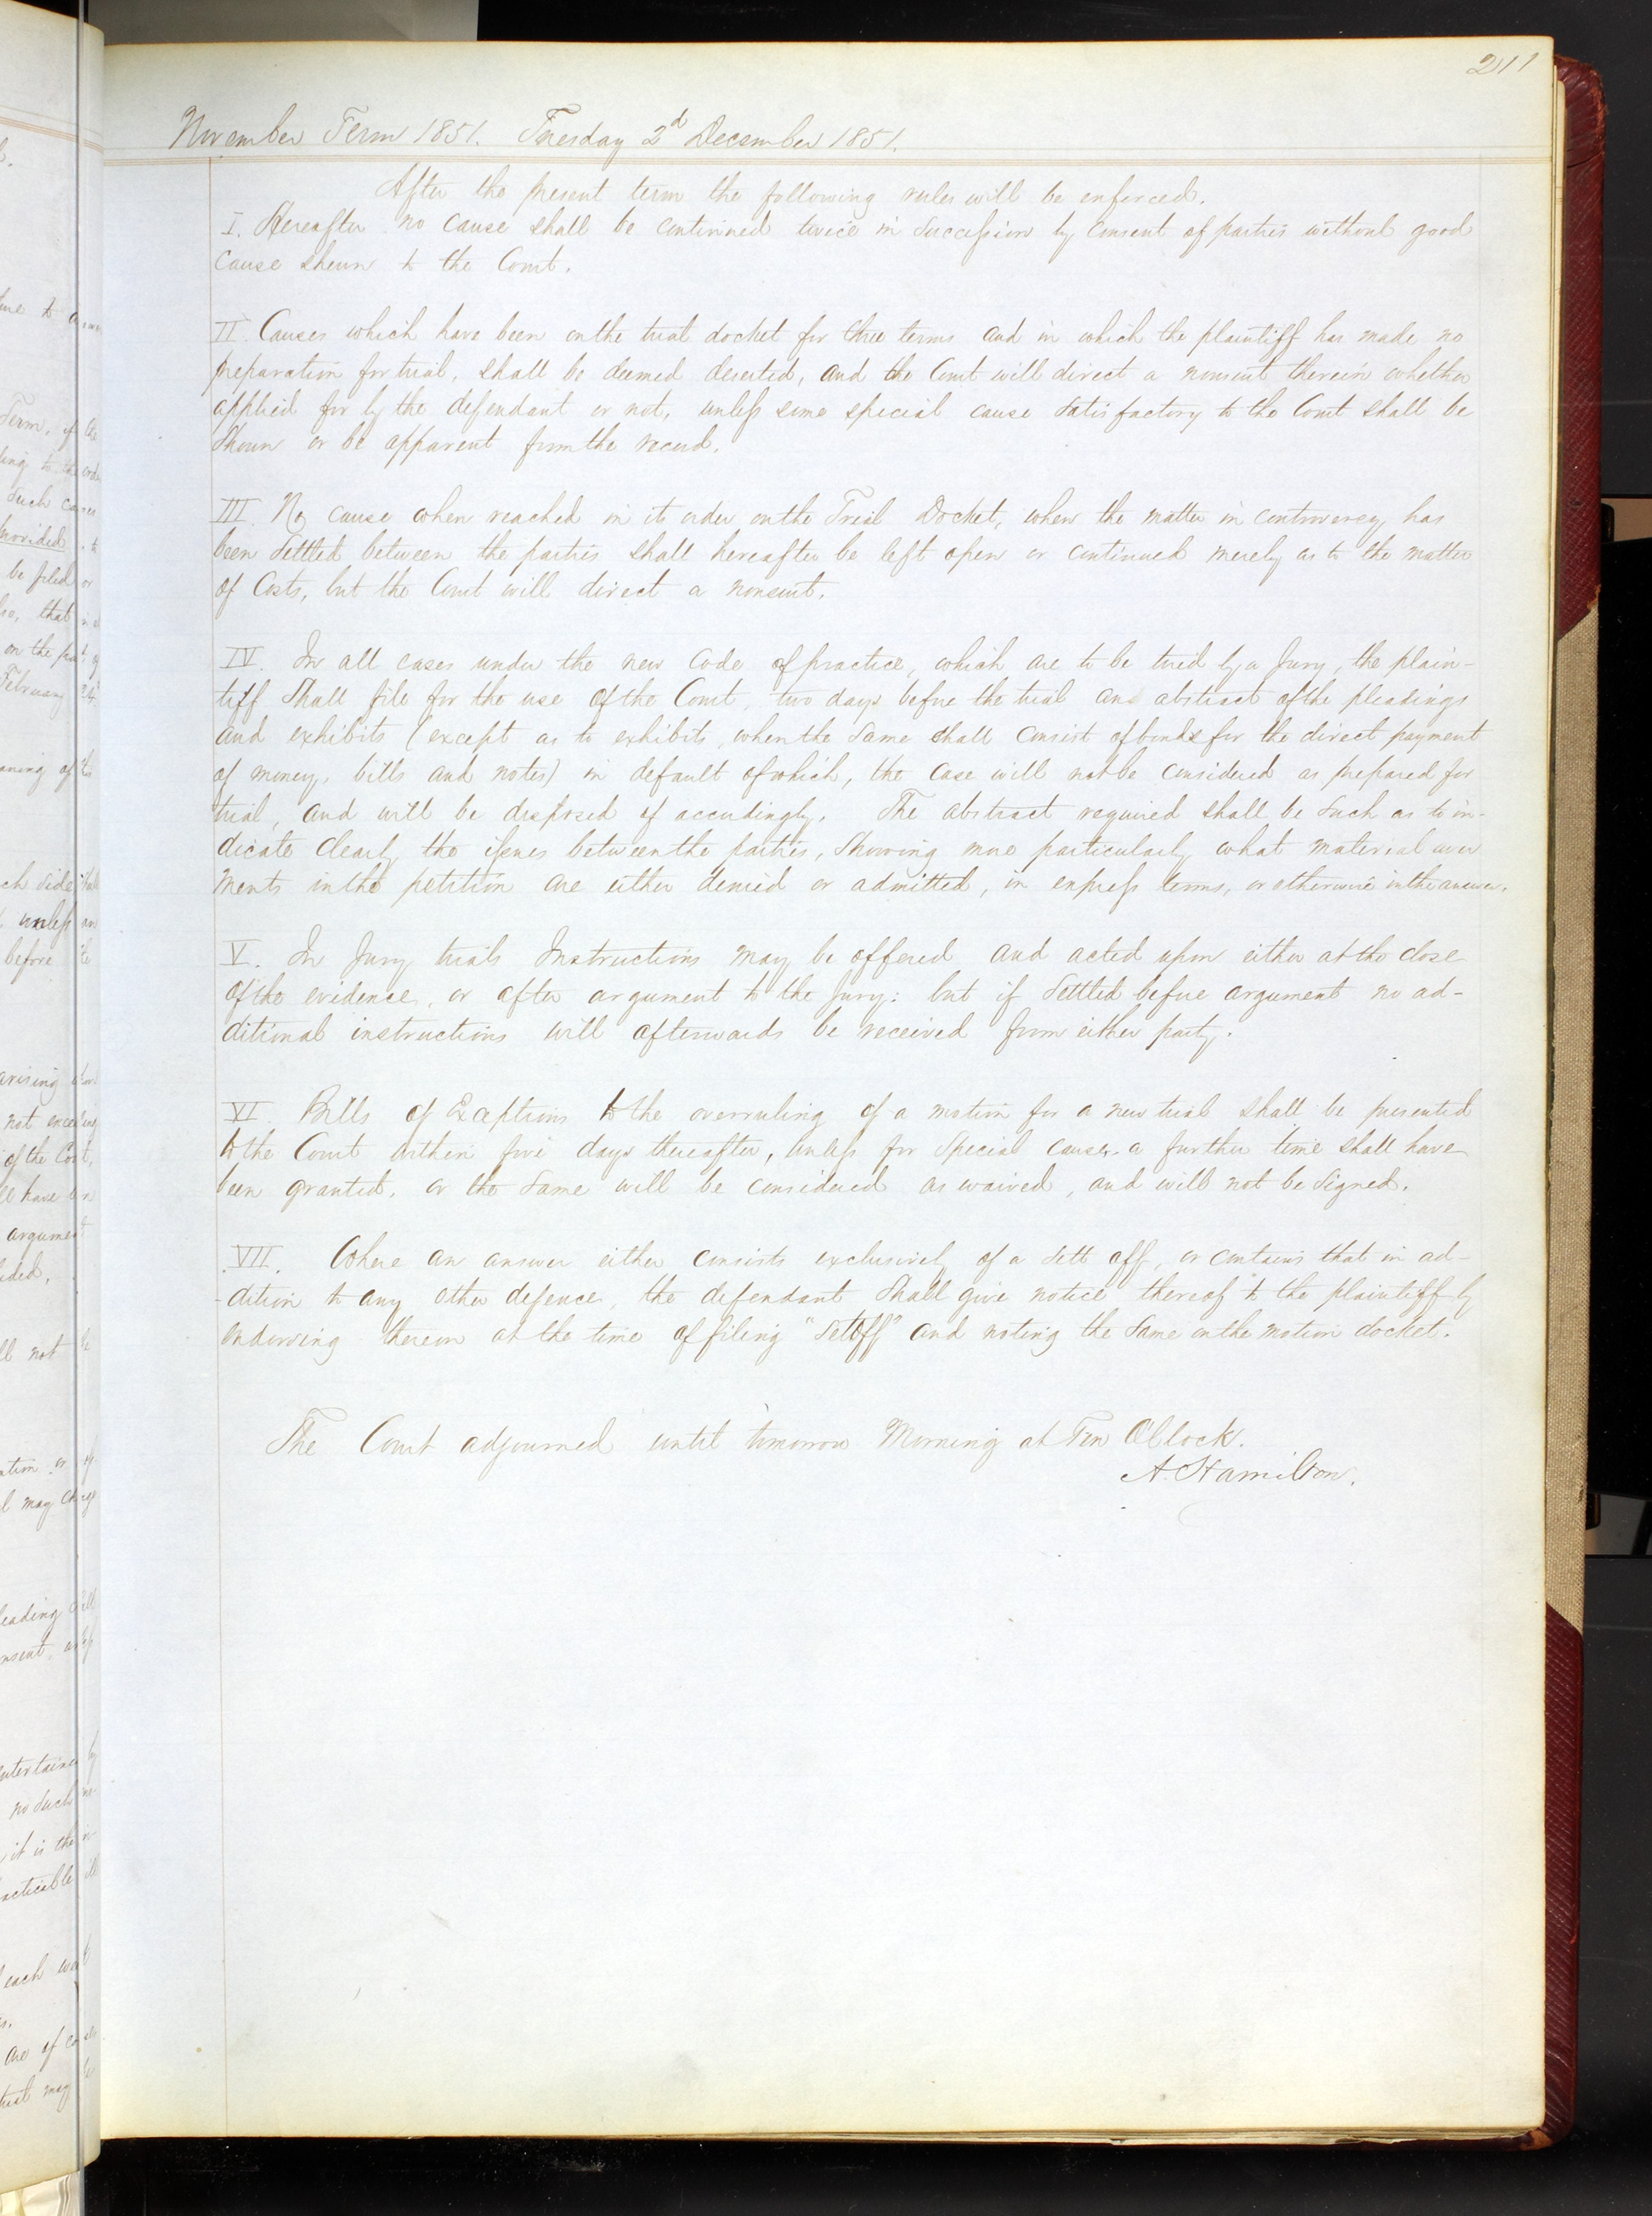 211
November Term 1851. Tuesday 2d December 1851.
After the present term the following rules will be enforced.
I. Hereafter no cause shall be continued twice in succession by consent of parties without good
cause shewn to the Court.
II. Causes which have been on the trial docket for three terms and in which the plaintiff has made no
preparation for trial, shall be deemed deserted, and the Court will direct a nonsuit therein whether
applied for by the defendant or not, unless some special cause satisfactory to the Court shall be
shewn or be apparent from the record.
III. No cause when reached in its order on the Trial Docket, when the matter in controversy has
been settled between the parties shall hereafter be left open or continued merely as to the matter
of Costs, but the Court will direct a nonsuit.
IV. In all cases under the new Code of practice, which are to be tried by a Jury, the plain-
tiff shall file for the use of the Court, two days before the trial an abstract of the pleadings
and exhibits (except as to exhibits, when the same shall consist of bonds for the direct payment
of money, bills and notes) in default of which, the case will not be considered as prepared for
trial, and will be disposed of accordingly. The abstract required shall be such as to in-
dicate clearly the issues between the parties, showing more particularly what material aver
ments in the petition are either denied or admitted, in express terms, or otherwise in the answer.
V. In Jury trials Instructions may be offered and acted upon either at the close
of the evidence, or after argument to the Jury: but if settled before argument no ad-
ditional instructions will afterwards be received from either party.
VI. Bills of Exceptions to the overruling of a motion for a new trial shall be presented
to the Court within five days thereafter, unless for special causes a further time shall have
been granted, or the same will be considered as waived, and will not be signed.
VII. Where an answer either consists exclusively of a sett off, or contains that in ad-
-dition to any other defence, the defendant shall give notice thereof to the plaintiff by
endorsing thereon at the time of filing "Setoff" and noting the same on the motion docket.
The Court adjourned until tomorrow Morning at Ten O'Clock.
A. Hamilton.